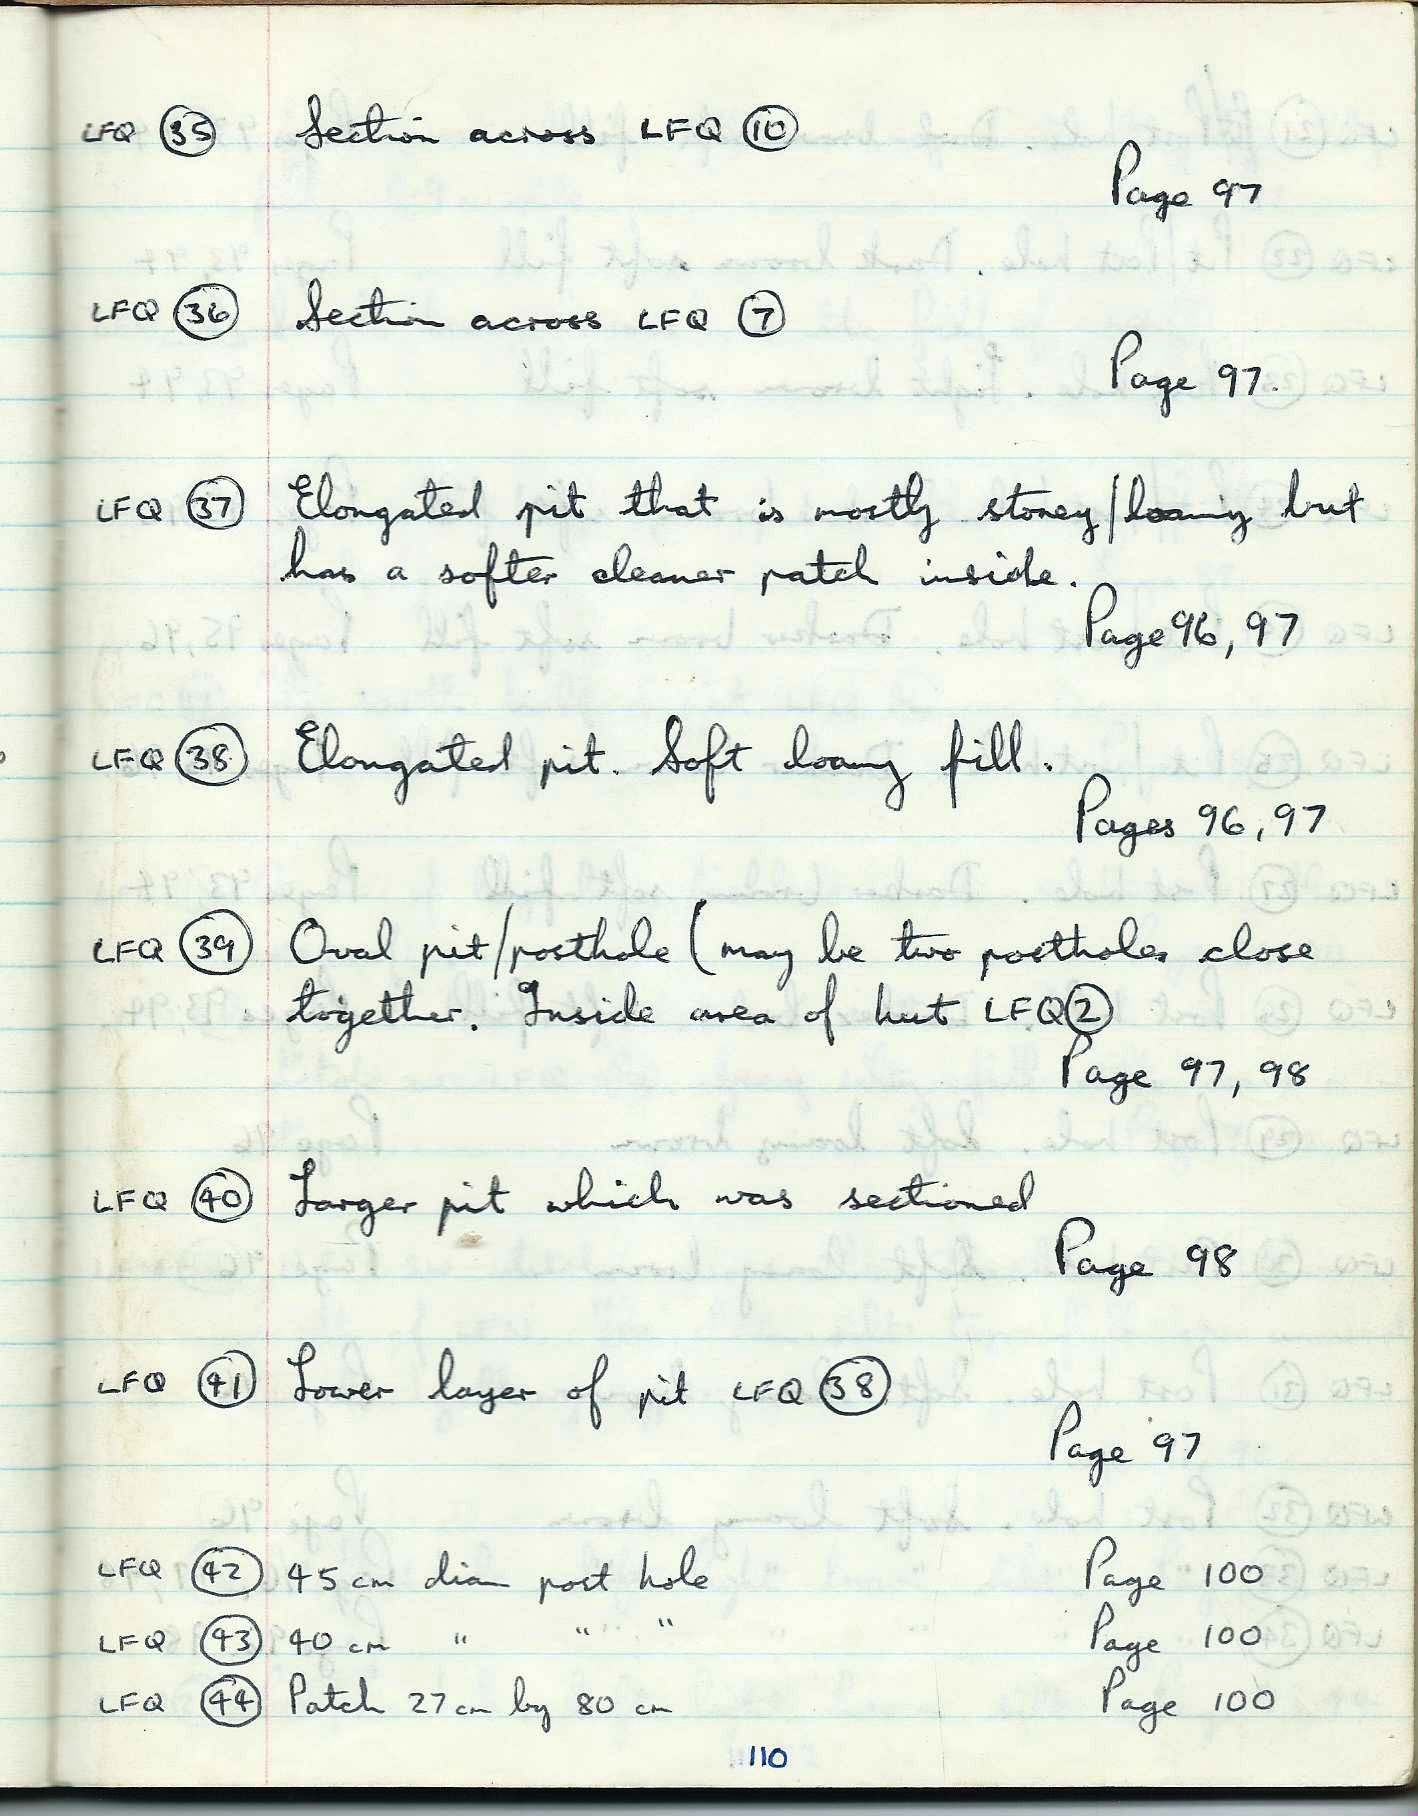 LFQ 35 Section across LFQ 10
Page 97
LFQ 36 Section across LFQ 7
Page 97.
LFQ 37 Elongated pit that is mostly stoney/loamy but
has a softer cleaner patch inside.
Page 96, 97
LFQ 38 Elongated pit. Soft loamy fill.
Pages 96, 97
LFQ 39 Oval pit/posthole (may be two postholes close
together. Inside area of hut LFQ 2
Page 97, 98
LFQ 40 Larger pit which was sectioned
Page 98
LFQ 41 Lower layer of pit LFQ 38
Page 97
LFQ 42 45 cm diam post hole Page 100
LFQ 43 40 cm " " " Page 100
LFQ 44 Patch 27 cm by 80 cm Page 100
110